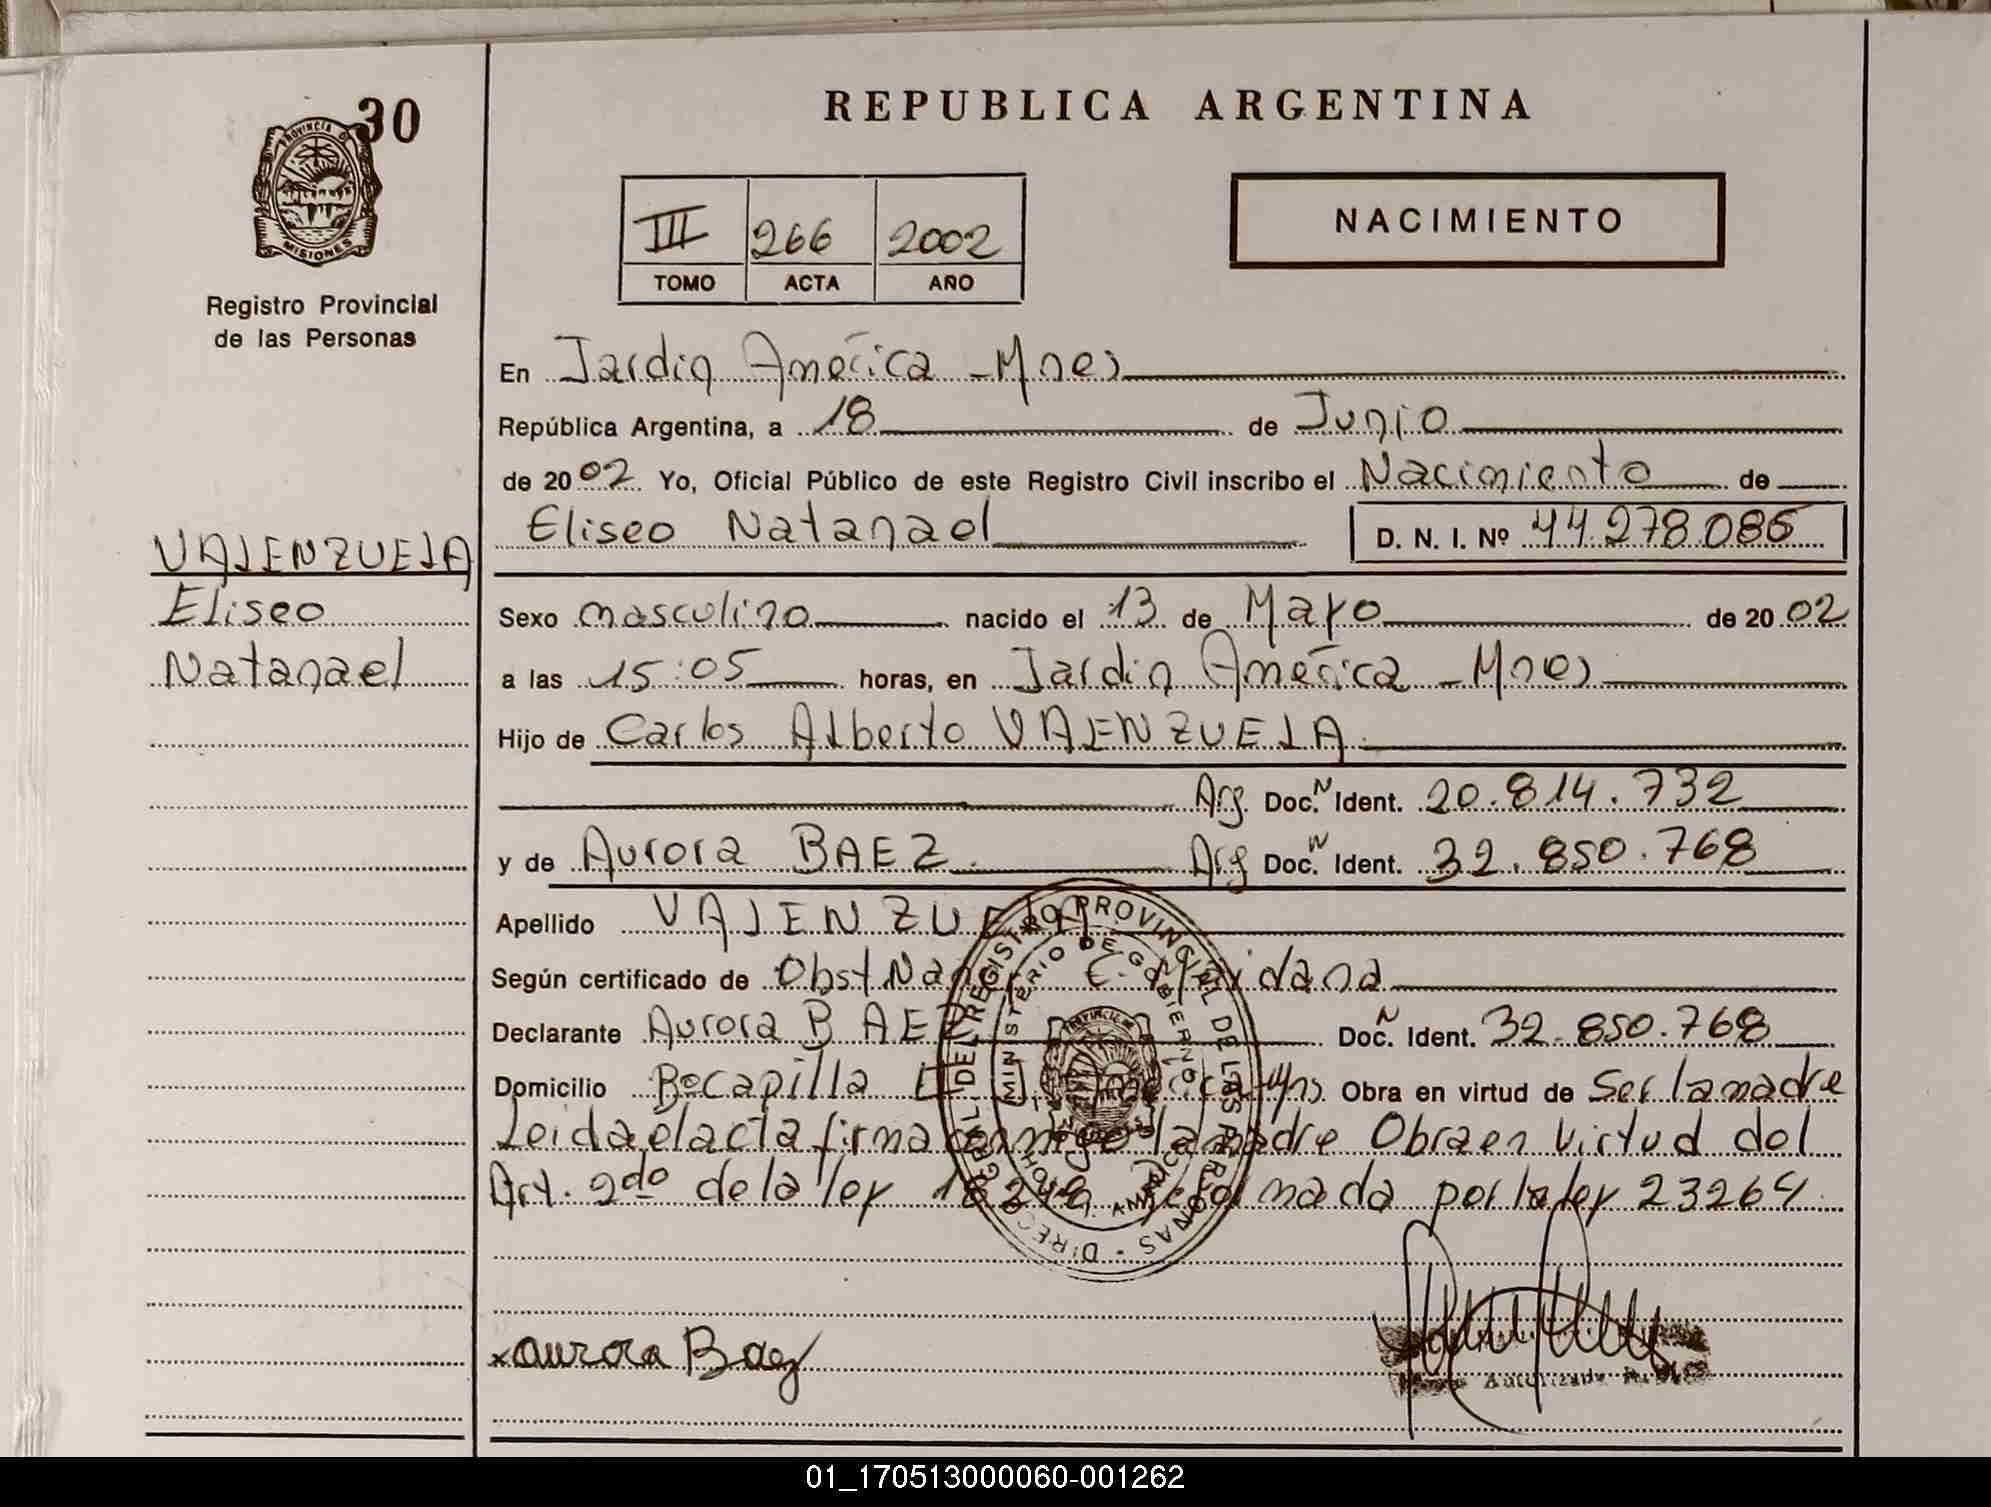 30
PROVINCIA DE
MISIONES
Registro Provincial
de las Personas
VALENZUELA
Eliseo
Natanael
REPUBLICA ARGENTINA
III 266 2002
TOMO ACTA AÑO
NACIMIENTO
En Jardin América - Mnes
República Argentina, a 18 de Junio
de 2002 Yo, Oficial Público de este Registro Civil inscribo el Nacimiento de
Eliseo Natanael D. N. I. Nº 44.278.086
Sexo masculino nacido el 13 de Mayo de 2002
a las 15:05 horas, en Jardin América - Mnes
Hijo de Carlos Alberto VALENZUELA
Arg. Doc. N Ident. 20.814.732
y de Aurora BAEZ Arg Doc. N Ident. 32.850.768
Apellido VALENZUELA
Según certificado de Obst C. Maidana
Declarante Aurora BAEZ Doc. N Ident. 32.850.768
Domicilio Bº Capilla Obra en virtud de Ser la madre
Leida el acta firma conmigo la madre Obra en virtud del
Art. 2do de la ley 18248 reformada por la ley 23264
DIRECC. GRAL. DEL REGISTRO PROVINCIAL DE LAS PERSONAS
MINISTERIO DE GOBIERNO
x aurora Baez
01_170513000060-001262